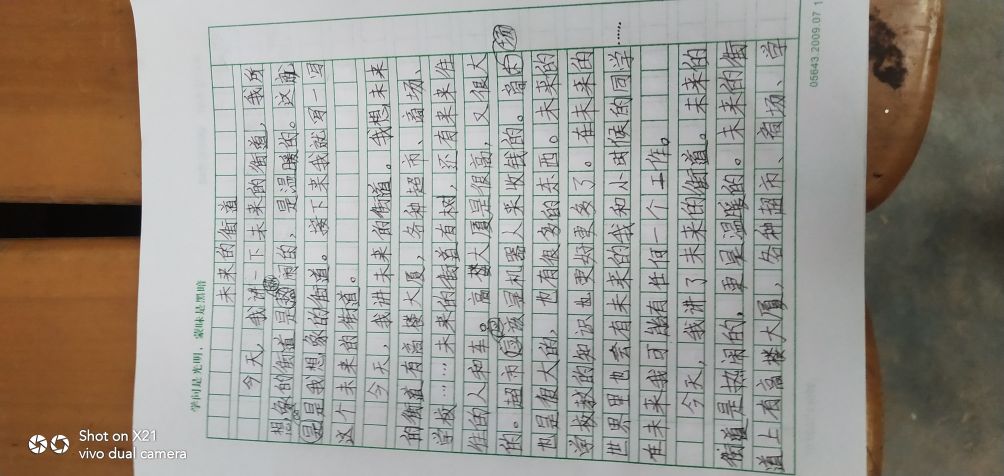 学问是光明，蒙昧是黑暗
未来的街道
今天，我讲一下未来的街道，我所
想象的街道是热闹的，是温暖的。这就
是是我想象的街道。接下来我就写一写
这个未来的街道。
今天，我讲未来的街道。我想未来
的街道有高楼大厦，各种超市、商场、
学校……未来的街道有树，还有来来往
往的人和车。高楼大厦是很高，又很大
的。超市应该是机器人来收钱的。商场
也是很大的，也有很多的东西。未来的
学校教的知识也更好更多了。在未来的
世界里也会有未来的我和小时候的同学……
在未来我可能有任何一个工作。
今天，我讲了未来的街道。未来的
街道是热闹的，更是温暖的。未来的街
道上有高楼大厦，各种超市、商场、学
05643.2009.07 1
Shot on X21
vivo dual camera